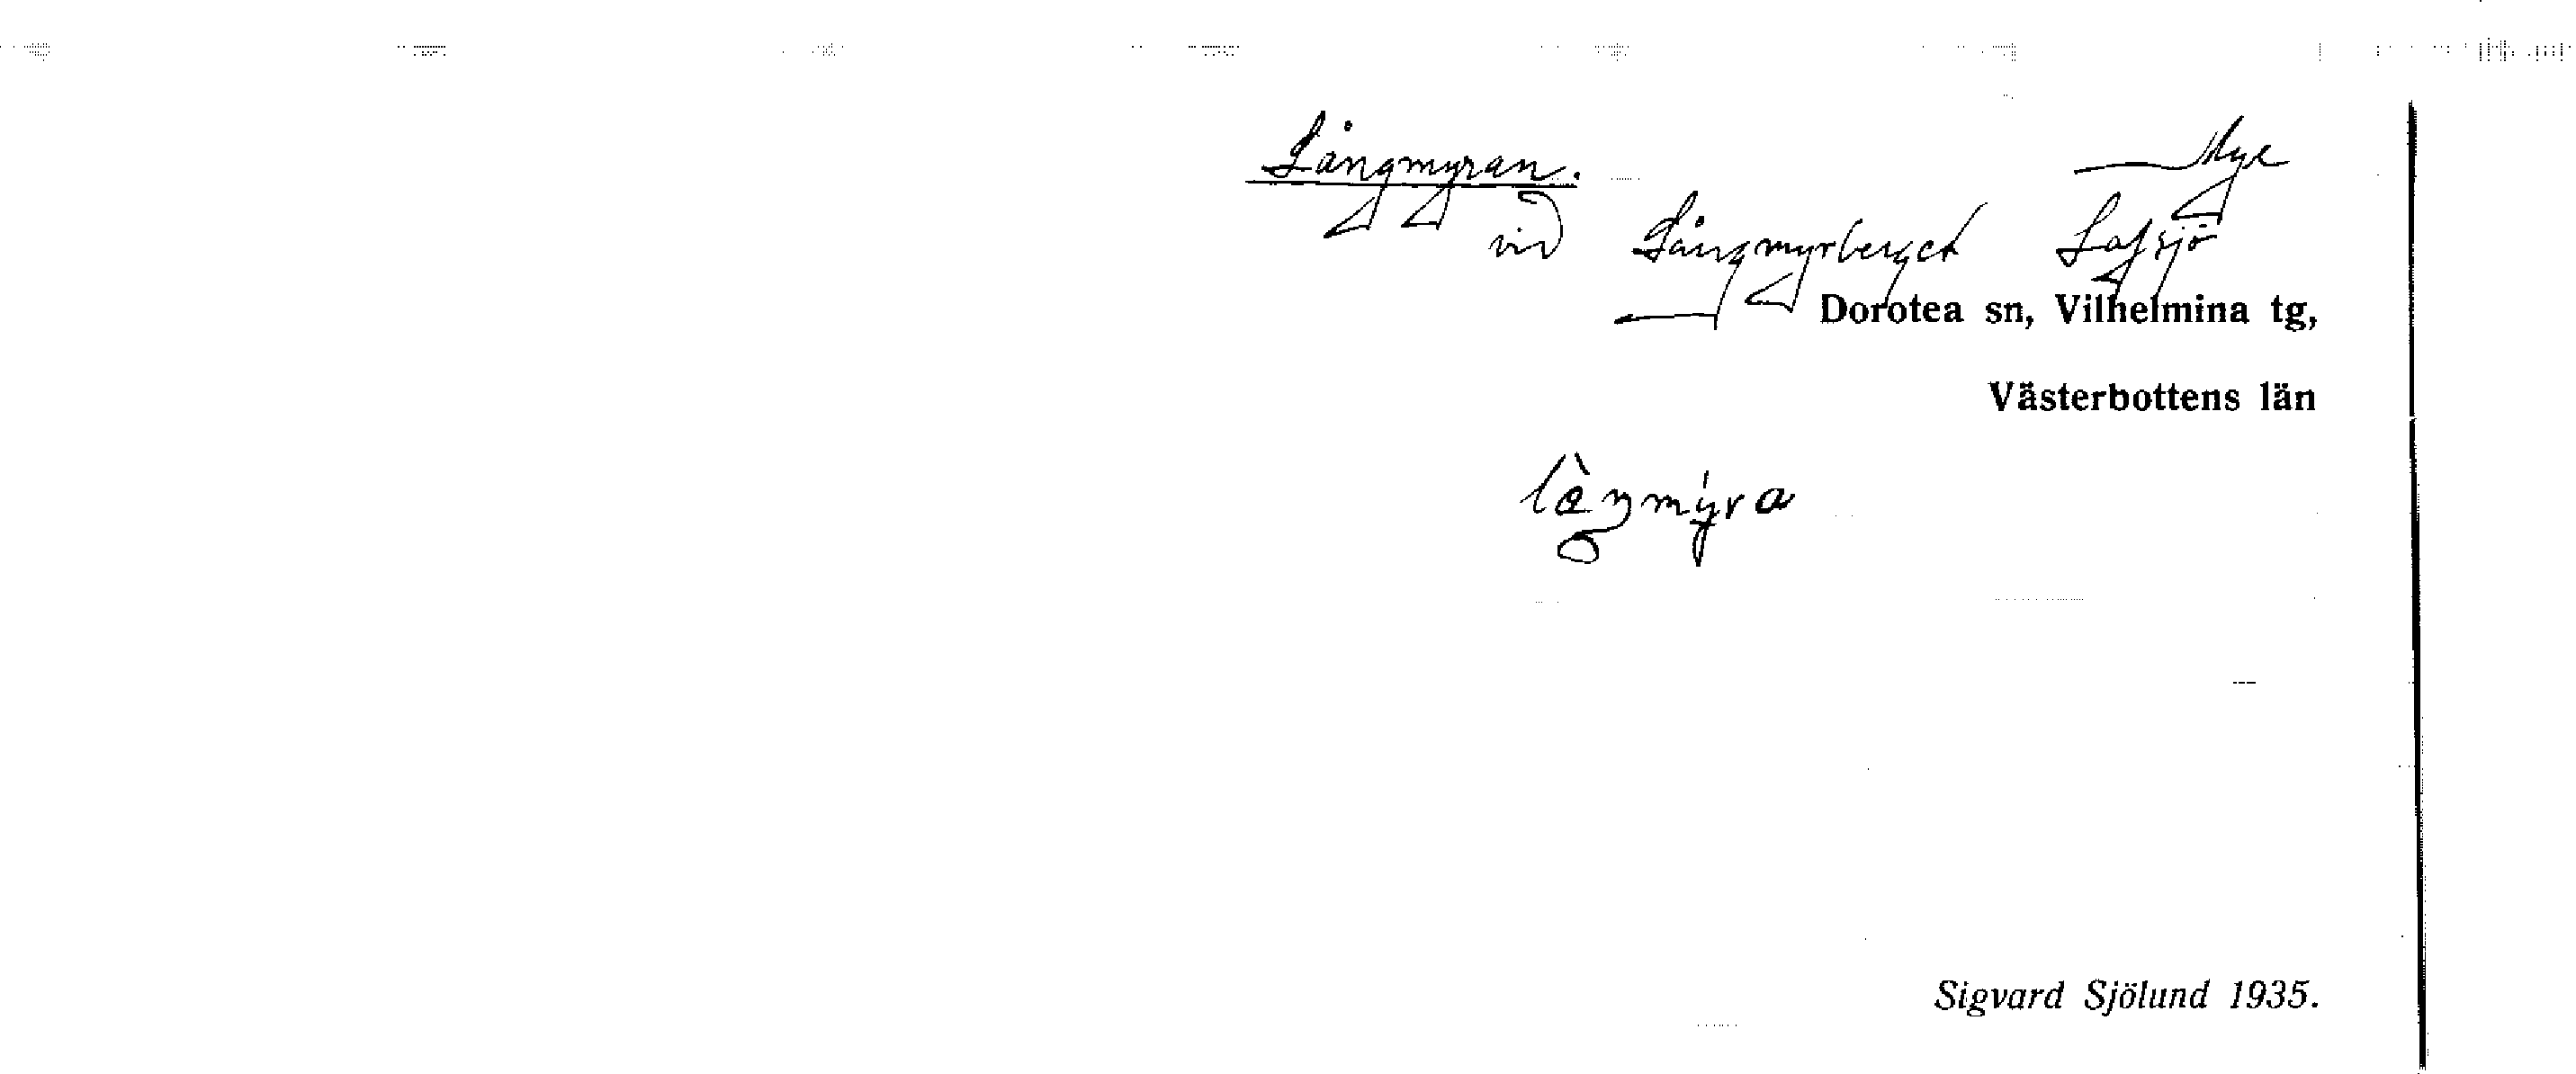 Långmyran. Myr
vid Långmyrberget Lafsjö
Dorotea sn, Vilhelmina tg,
Västerbottens län
Sigvard Sjölund 1935.